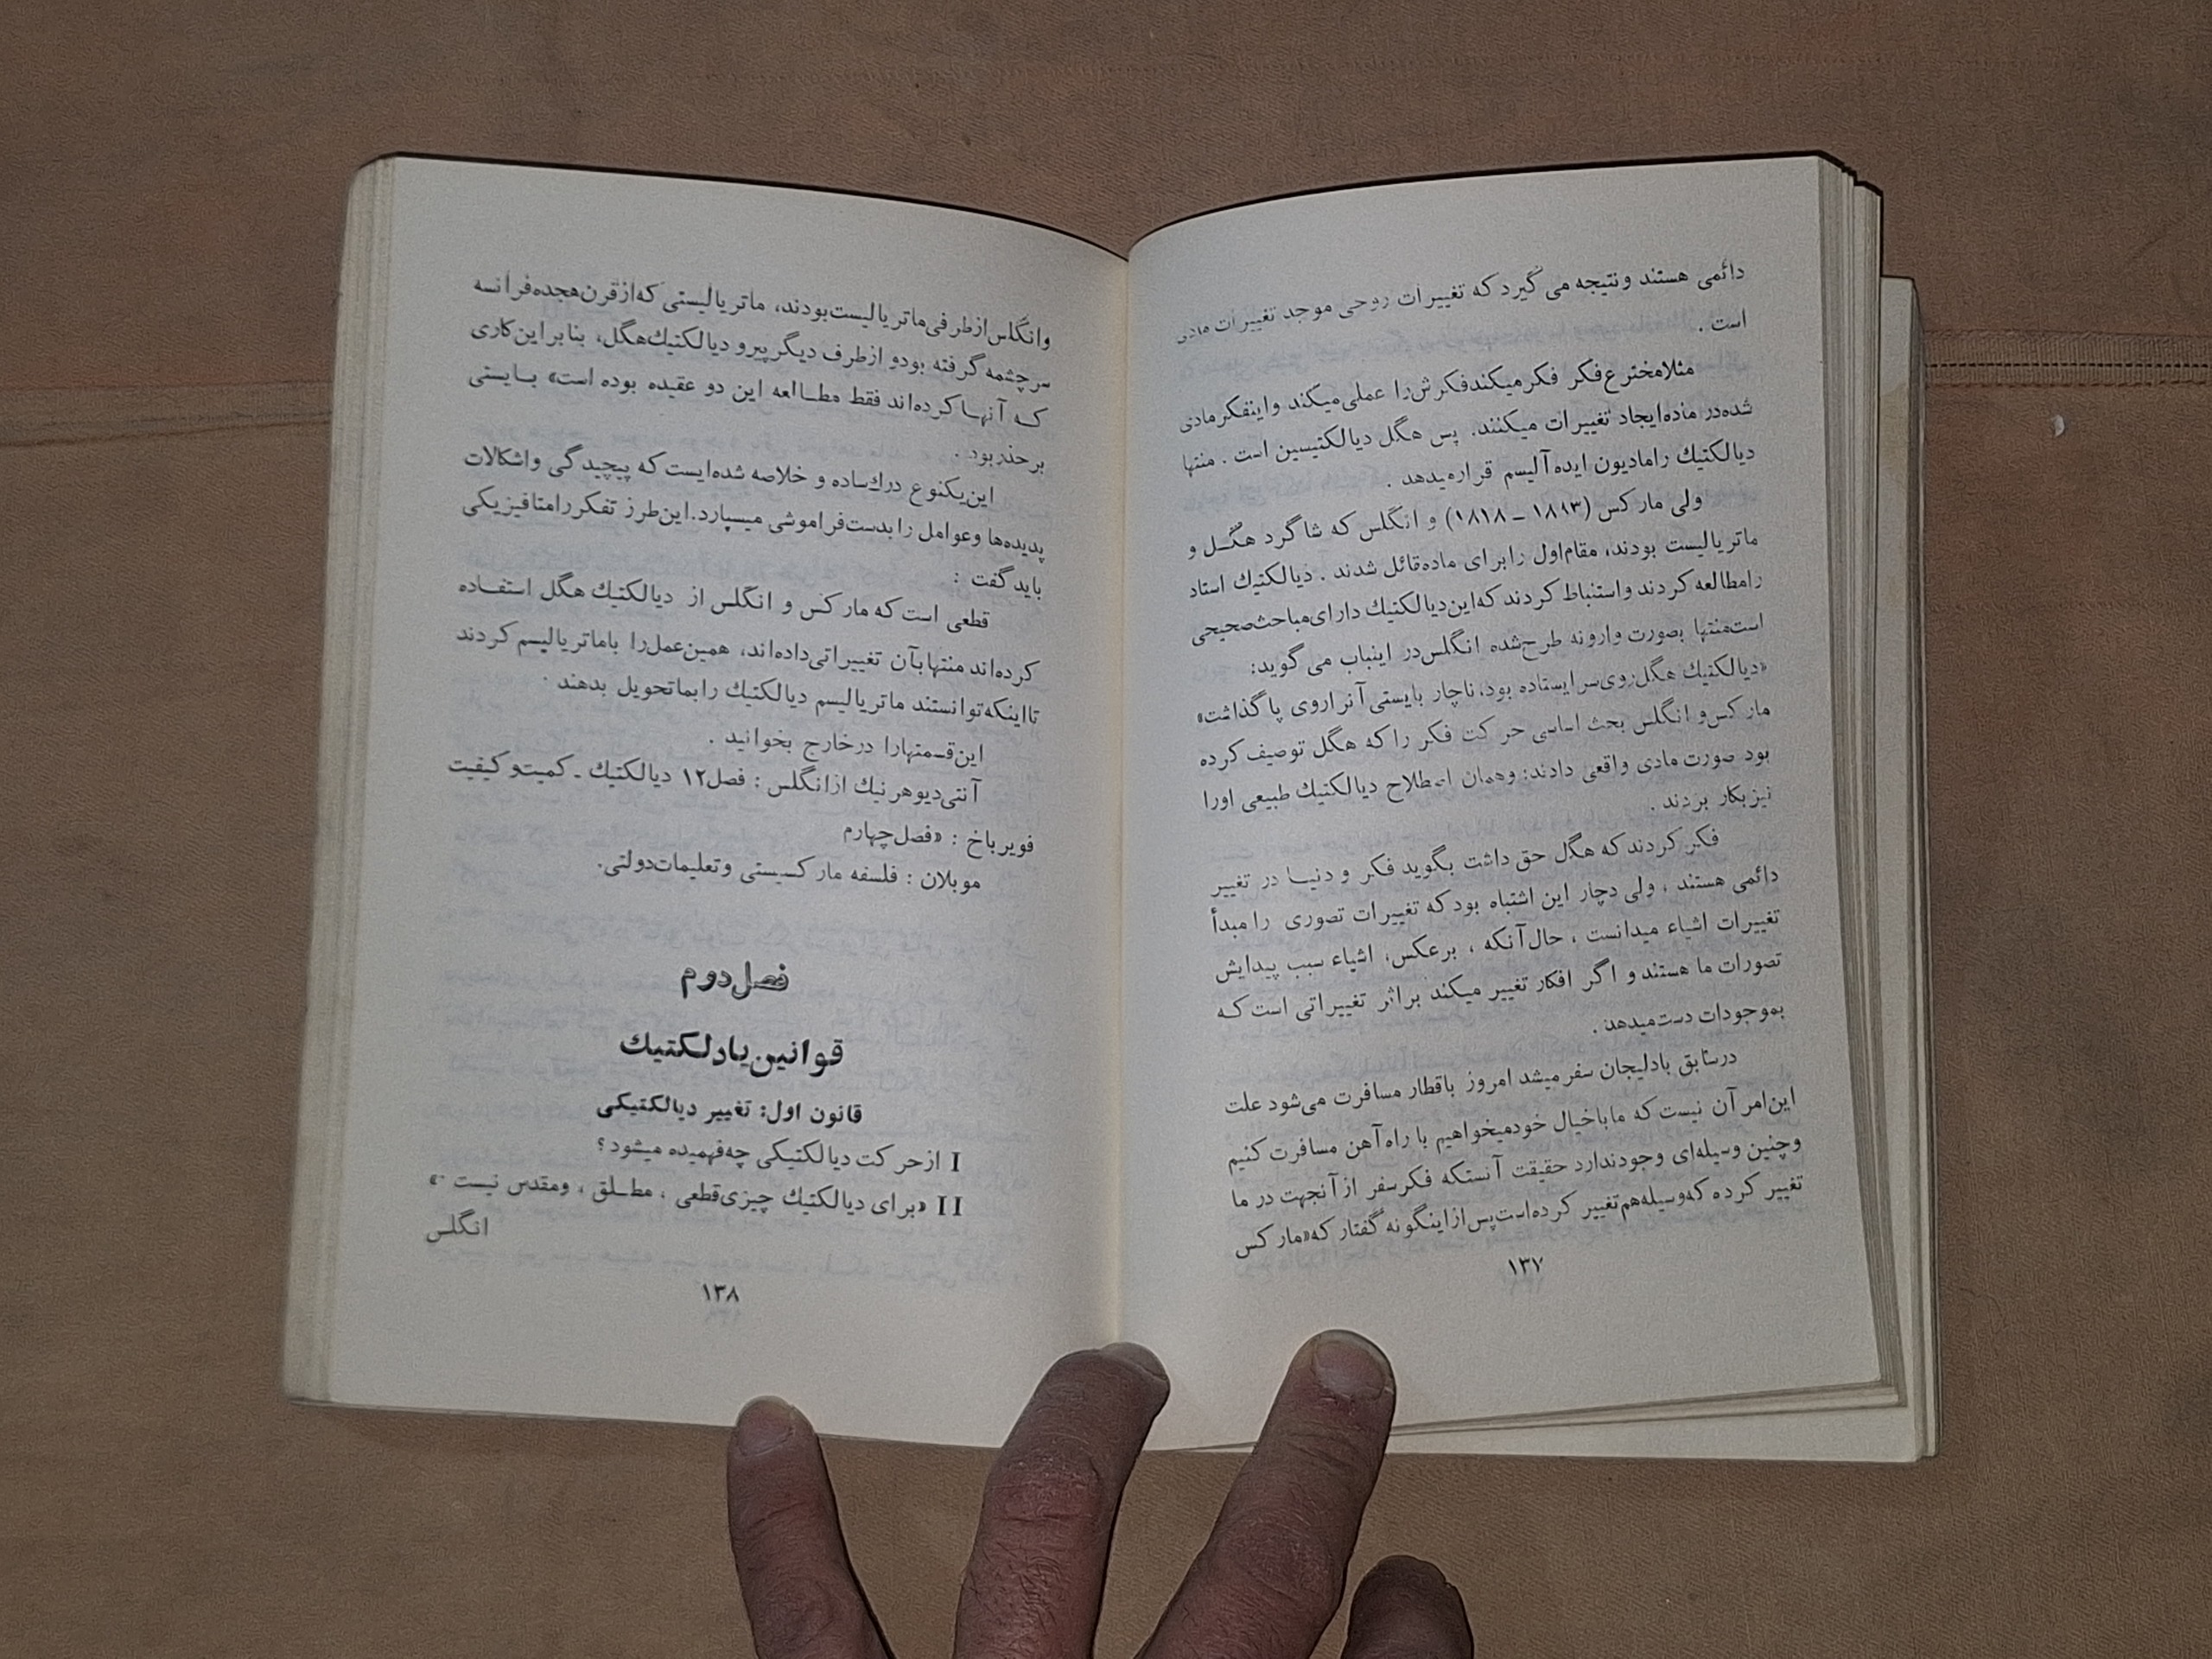 دائمی هستند ونتیجه می گیرد که تغییرات روحی موجد تغییرات مادی
است .
مثلامخترع فکر فکرمیکندفکرش را عملی میکند واینفکرمادی
شده در ماده ایجاد تغییرات میکنند. پس هگل دیالکتیسین است . منتها
دیالکتیك رامادیون ایده آلیسم قرارمیدهد .
ولی مارکس (۱۸۸۳ – ۱۸۱۸) و انگلس که شاگرد هگـل و
ماتریالیست بودند، مقام اول رابرای ماده قائل شدند . دیالکتیك استاد
رامطالعه کردند واستنباط کردند که این دیالکتیك دارای مباحث صحیحی
است منتها بصورت وارونه طرح شده انگلس در اینباب می گوید:
«دیالکتیك هگل روی سر ایستاده بود، ناچار بایستی آنراروی پا گذاشت»
مارکس و انگلس بحث اساسی حرکت فکر را که هگل توصیف کرده
بود صورت مادی واقعی دادند: وهمان اصطلاح دیالکتیك طبیعی اورا
نیز بکار بردند .
فکر کردند که هگل حق داشت بگوید فکر و دنیـا در تغییر
دائمی هستند ، ولی دچار این اشتباه بود که تغییرات تصوری را مبدأ
تغییرات اشیاء میدانست ، حال آنکه ، برعکس، اشیاء سبب پیدایش
تصورات ما هستند و اگر افکار تغییر میکند براثر تغییراتی است کـه
بموجودات دست میدهد .
درسابق بادلیجان سفر میشد امروز باقطار مسافرت می شود علت
این امر آن نیست که ما باخیال خودمیخواهیم با راه آهن مسافرت کنیم
وچنین وسیله ای وجودندارد حقیقت آنستکه فکرسفر از آنجهت در ما
تغییر کرده که وسیله هم تغییر کرده است پس از اینگونه گفتار که «مارکس
۱۳۷
وانگلس از طرفی ماتریالیست بودند، ماتریالیستی که از قرن هجده فرانسه
سرچشمه گرفته بود و ازطرف دیگر پیرو دیالکتیك هگل، بنابراین کاری
کـه آنهـا کرده اند فقط مطـالعه این دو عقیده بوده است» بـایستی
برحذر بود .
این یکنوع درك ساده و خلاصه شده ایست که پیچیدگی واشکالات
پدیده ها وعوامل را بدست فراموشی میسپارد. این طرز تفکر رامتافیزیکی
باید گفت :
قطعی است که مارکس و انگلس از دیالکتیك هگل استفـاده
کرده اند منتها بآن تغییراتی داده اند، همین عمل را باماتریالیسم کردند
تااینکه توانستند ماتریالیسم دیالکتیك رابماتحویل بدهند .
این قسمتهارا درخارج بخوانید .
آنتی دیوهرنیك ازانگلس : فصل ۱۲ دیالکتیك ـ کمیت و کیفیت
فویر باخ : «فصل چهارم
موبلان : فلسفه مارکسیستی وتعلیمات دولتی.
فصل دوم
قوانین یادلکتیك
قانون اول: تغییر دیالکتیکی
I ازحرکت دیالکتیکی چه فهمیده میشود ؟
II «برای دیالکتیك چیزی قطعی ، مطـلق ، ومقدس نیست .»
انگلس
۱۳۸